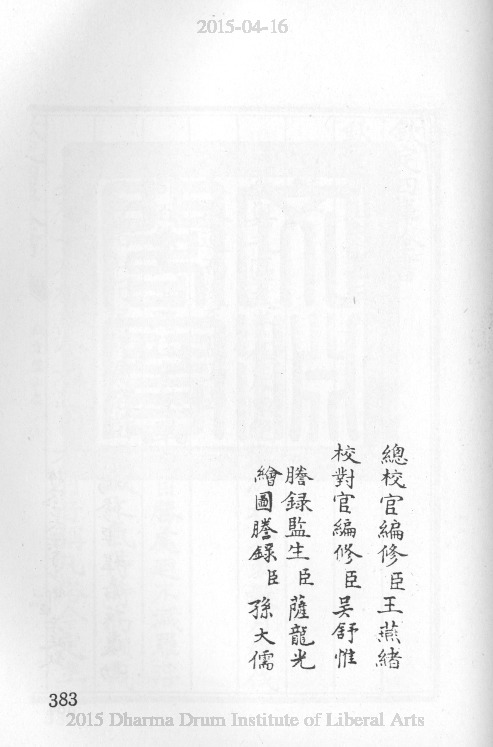 2015-04-16
總校官編修臣王燕緒
校對官編修臣吳舒惟
謄錄監生臣薩龍光
繪圖謄錄臣孫大儒
383
2015 Dharma Drum Institute of Liberal Arts